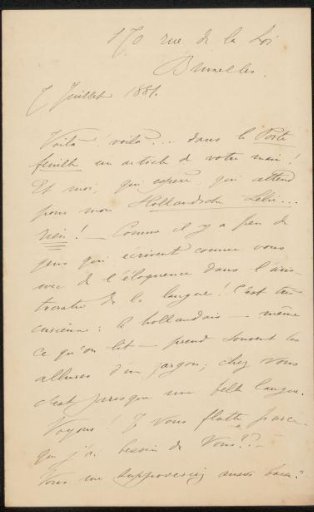 170 rue de la Loi
Bruxelles.
7 Juillet 1881.
Voilà! voilà?... dans le Porte
feuille un article de votre main!
Et moi, qui espère, qui attend
pour mon Hollandsche Lelie...
rien! — Comme il y a peu de
gens qui écrivent comme vous
avec de l'éloquence dans l'
de la langue! C'est très
curieux: le hollandais — même
ce qu'on lit — prend souvent les
allures d'un jargon; chez vous
c'est presque une belle langue.
Voyons! Je vous flatte parce-
que j'ai besoin de Vous??—
Vous me supposeriez aussi bas?